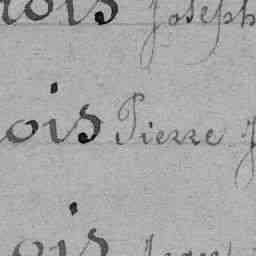 ois Joseph
ois Pierre J
ois Jean